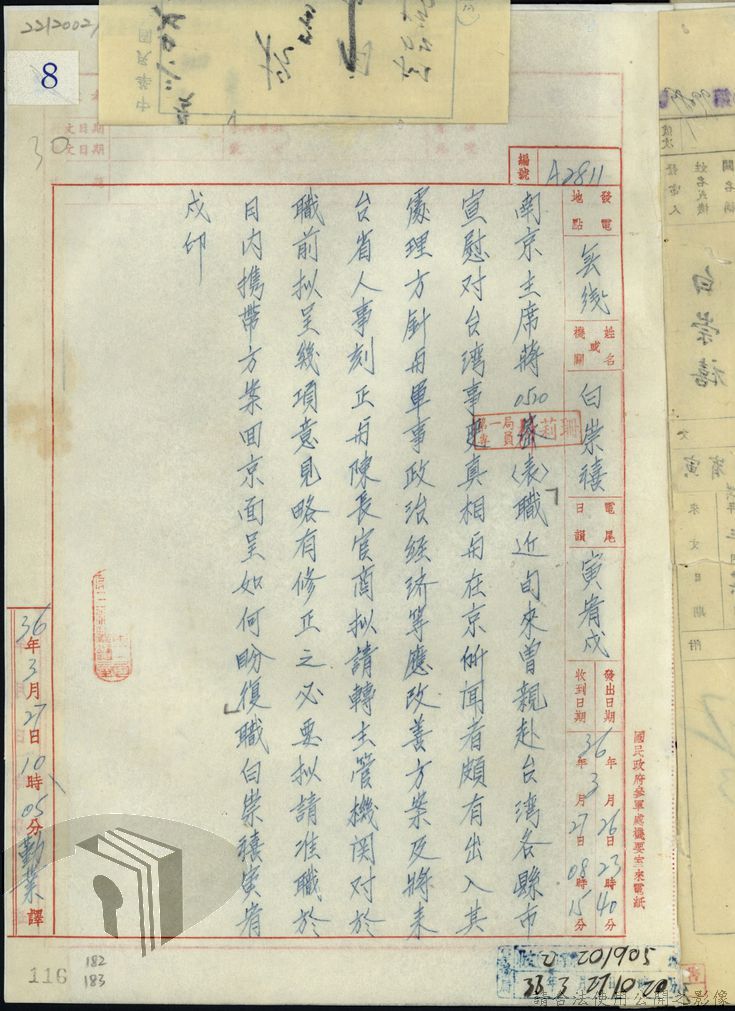 22/2002/
8
30
編號 A2811
發電地點 無线
姓名或機關 白崇禧
電尾日韻 寅宥戍
發出日期 36年3月26日23時40分
收到日期 27日08時15分
國民政府參軍處機要室來電紙
南京主席蔣0520 〈表〉職近旬來曾親赴台湾各縣市
宣慰对台湾事變真相与在京所闻者頗有出入其
處理方針与軍事政治经济等應改善方案及將来
台省人事刻正与陳長官商拟請轉主管機関对於
職前拟呈幾項意見略有修正之必要拟請准職於
日内携帶方案回京面呈如何盼復職白崇禧寅宥
戍印
第一局專員 莉珊
36年3月27日10時05分勤業譯
116
182
183
201905
36 3 27 10 20
請合法使用公開之影像
中華民國
白崇禧
寅宥
來文日期
附